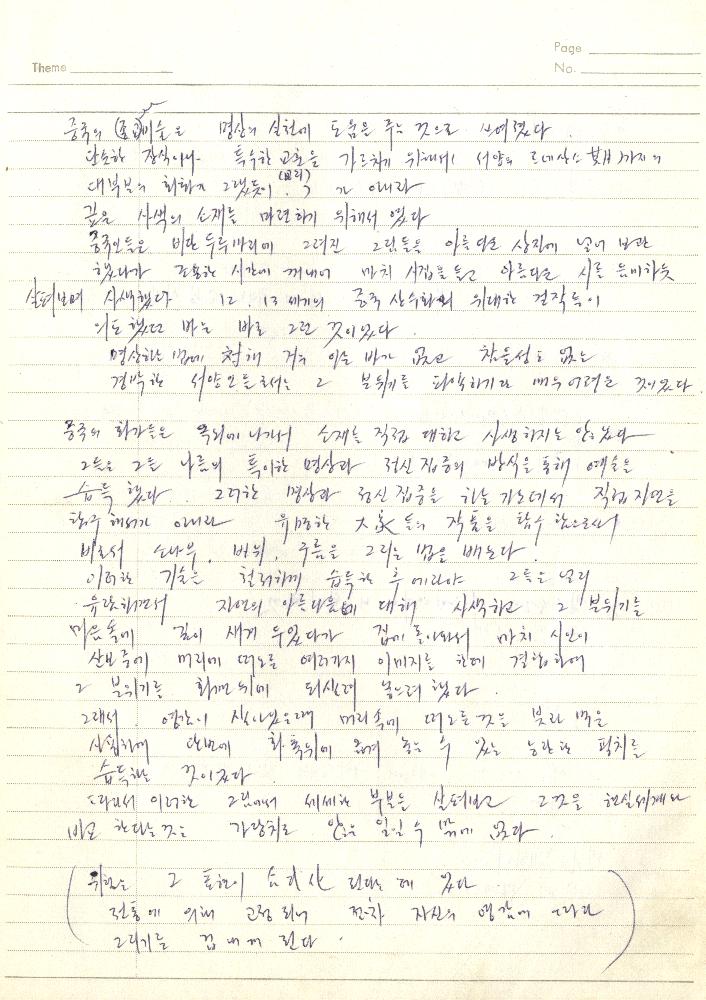 Page
Theme
No.
중국의 (종교)미술은 명상의 실천에 도움을 주는 것으로 쓰여졌다.
단순한 장식이나 특수한 교훈을 가르치기 위해서( 서양의 르네상스 까지의
대부분의 회화가 그랬듯이 . ) 가 아니라
(교리)
깊은 사색의 소재를 마련하기 위해서 였다
중국인들은 비단 두루마리에 그려진 그림들을 아름다운 상자에 넣어 보관
했다가 조용한 시간에 꺼내어 마치 시집을 들고 아름다운 시를 음미하듯
살펴보며 사색했다 12. 13세기의 중국 산수화의 위대한 걸작들이
의도했던 바는 바로 그런 것이었다.
명상하는 법에 対해 거의 아는 바가 없고 참을성도 없는
경박한 서양인들로서는 그 분위기를 파악하기란 매우 어려운 것이었다.
중국의 화가들은 옥외에 나가서 소재를 직접 대하고 사생하지는 않았다
그들은 그들 나름의 특이한 명상과 정신집중의 방식을 통해 예술을
습득했다. 그러한 명상과 정신집중을 하는 가운데서 직접 자연을
탐구해서가 아니라 유명한 大家들의 작품을 탐구함으로써
비로서 소나무, 바위, 구름을 그리는 법을 배운다.
이러한 기술은 철저하게 습득한 후에라야 그들은 널리
유람하면서 자연의 아름다움에 대해 사색하고 그 분위기를
마음속에 깊이 새겨 두었다가 집에 돌아와서 마치 시인이
산보중에 머리에 떠오른 여러가지 이미지를 한데 결합하여
그 분위기를 화면위에 되살려 놓으려 했다.
그래서 영감이 살아있을때 머리속에 떠오른 것을 붓과 먹을
사용하여 단번에 화폭위에 옮겨 놓을 수 있는 능란한 필치를
습득하는 것이었다
따라서 이러한 그림에서 세세한 부분을 살펴보고 그것을 현실세계와
비교한다는 것은 가당치도 않은 일일 수 밖에 없다.
위험은 그 표현이 公式化 된다는 데 있다
전통에 의해 고정되니 점차 자신의 영감에 따라
그리기를 겁내게 된다.